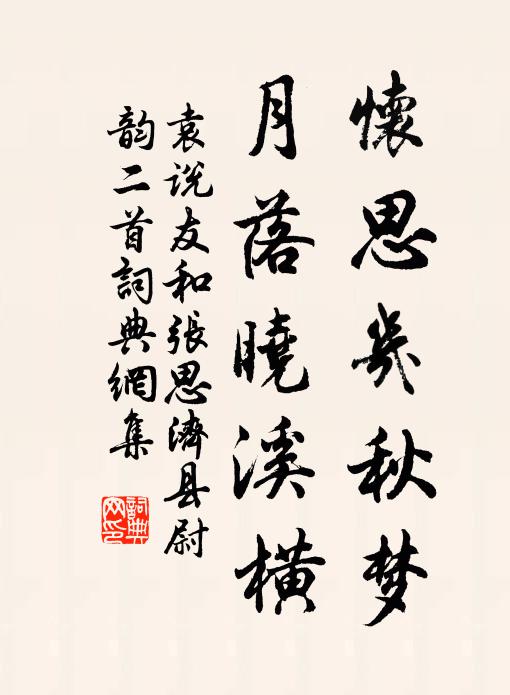 懷思幾秋梦
月落曉溪橫
袁说友和張思濟县尉
韵二首詞典網集
詞典
网印